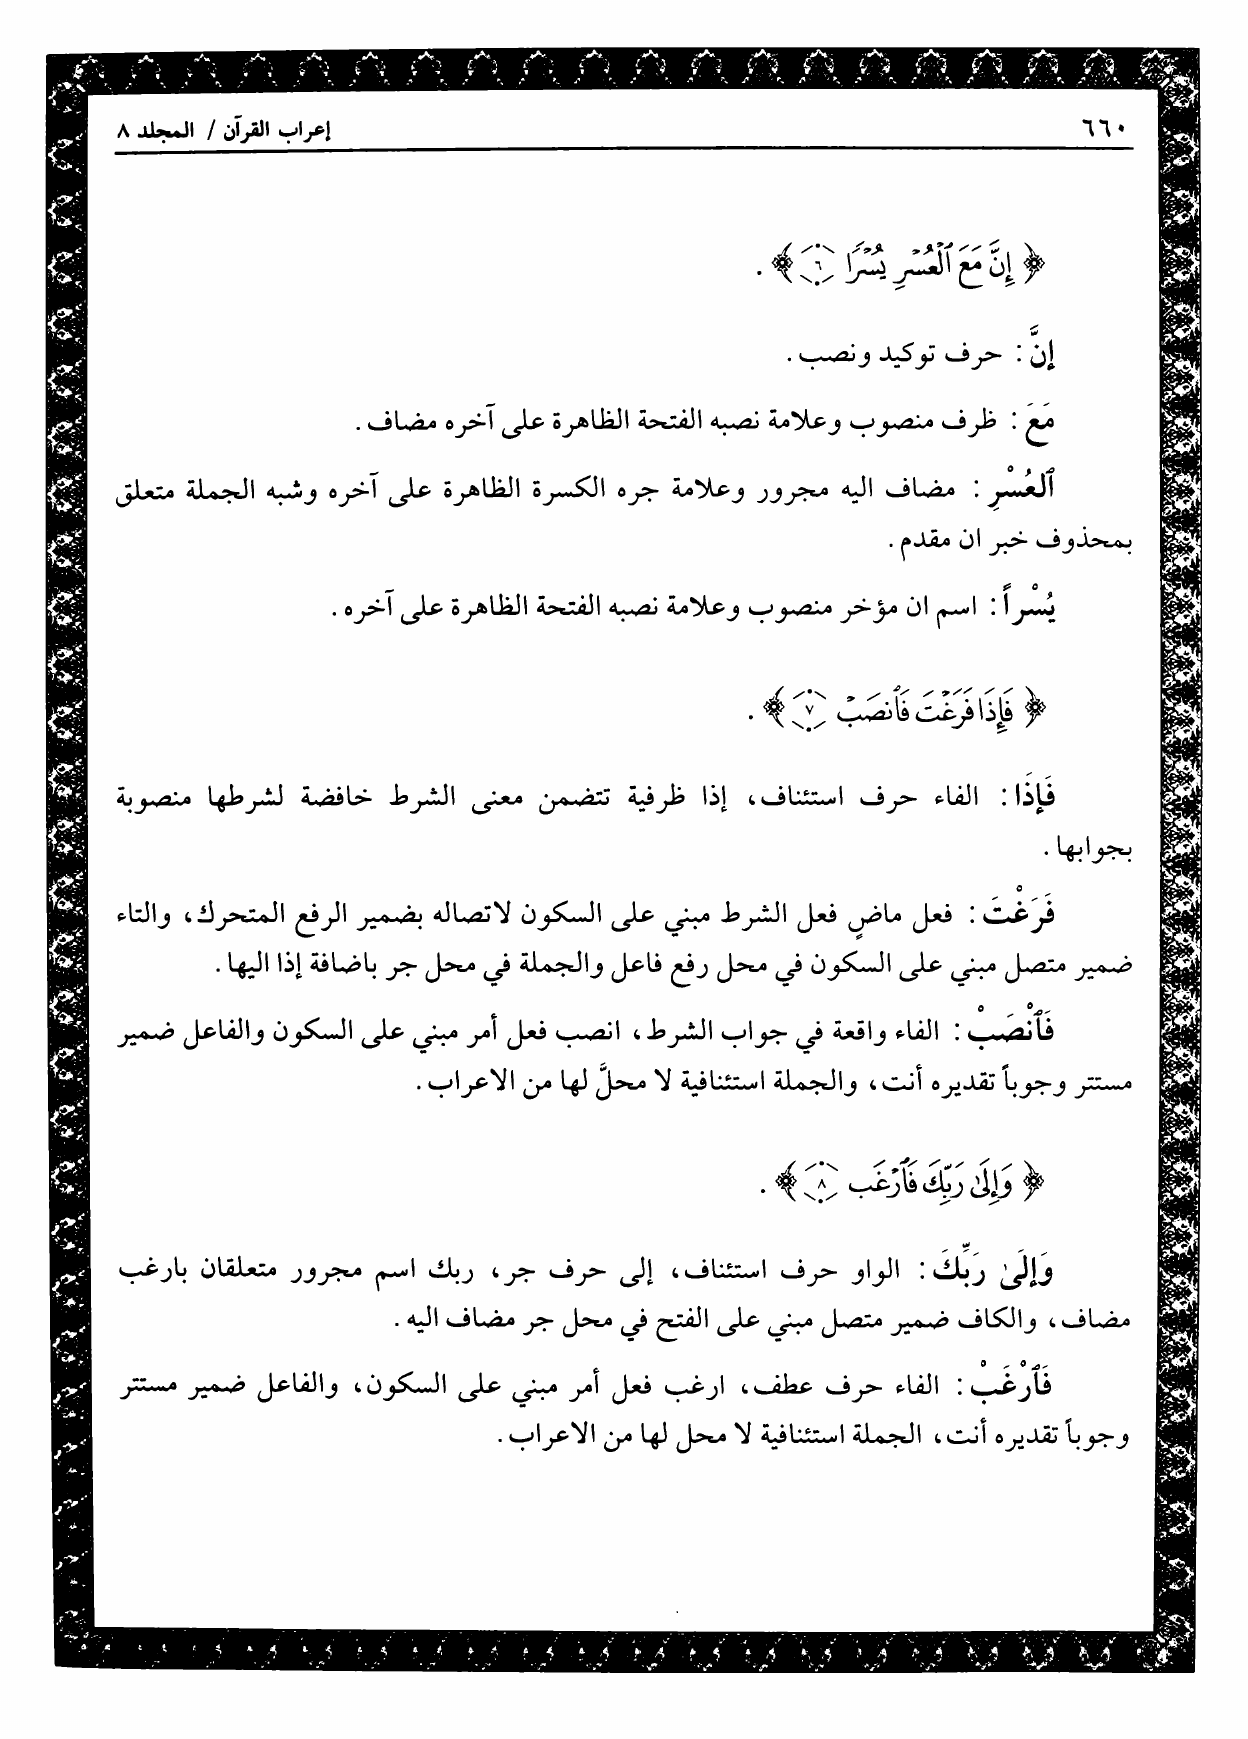 ٦٦٠
إعراب القرآن / المجلد ٨
﴿ إِنَّ مَعَ ٱلْعُسْرِ يُسْرًا ٦ ﴾ .
إنَّ : حرف توكيد ونصب .
مَعَ : ظرف منصوب وعلامة نصبه الفتحة الظاهرة على آخره مضاف .
ٱلعُسْرِ : مضاف اليه مجرور وعلامة جره الكسرة الظاهرة على آخره وشبه الجملة متعلق
بمحذوف خبر ان مقدم .
يُسْراً : اسم ان مؤخر منصوب وعلامة نصبه الفتحة الظاهرة على آخره .
﴿ فَإِذَا فَرَغْتَ فَٱنصَبْ ٧ ﴾ .
فَإذَا : الفاء حرف استئناف، إذا ظرفية تتضمن معنى الشرط خافضة لشرطها منصوبة
بجوابها .
فَرَغْتَ : فعل ماضٍ فعل الشرط مبني على السكون لاتصاله بضمير الرفع المتحرك، والتاء
ضمير متصل مبني على السكون في محل رفع فاعل والجملة في محل جر باضافة إذا اليها .
فَٱنْصَبْ : الفاء واقعة في جواب الشرط، انصب فعل أمر مبني على السكون والفاعل ضمير
مستتر وجوباً تقديره أنت، والجملة استئنافية لا محلَّ لها من الاعراب .
﴿ وَإِلَىٰ رَبِّكَ فَٱرْغَب ٨ ﴾ .
وَإلَىٰ رَبِّكَ : الواو حرف استئناف، إلى حرف جر، ربك اسم مجرور متعلقان بارغب
مضاف، والكاف ضمير متصل مبني على الفتح في محل جر مضاف اليه .
فَٱرْغَبْ : الفاء حرف عطف، ارغب فعل أمر مبني على السكون، والفاعل ضمير مستتر
وجوباً تقديره أنت، الجملة استئنافية لا محل لها من الاعراب .